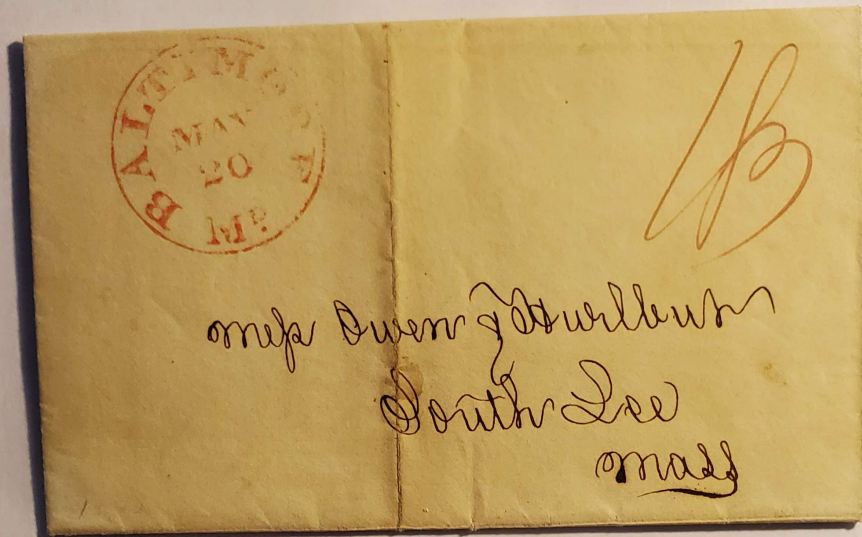 BALTIMORE Md.
MAY
20
18
Mess Owen & Hurlbut
South Lee
Mass